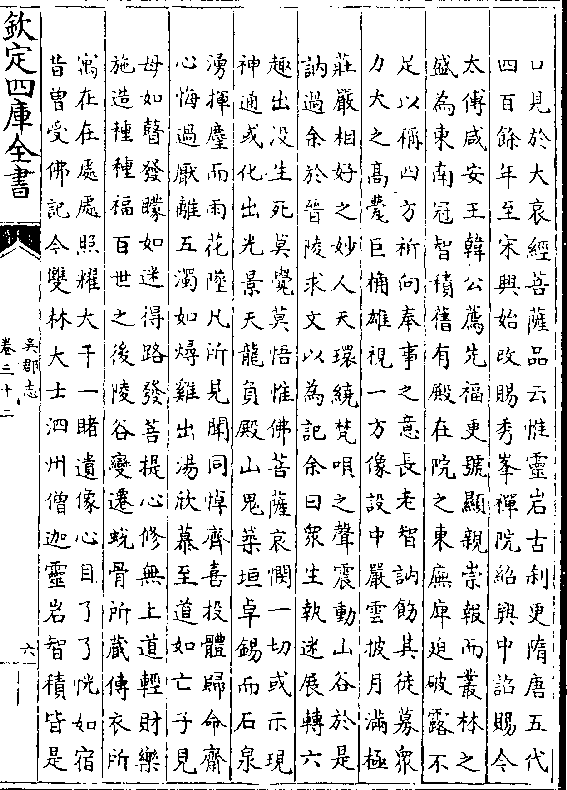 口見於大哀經菩薩品云惟靈岩古刹更隋唐五代
四百餘年至宋興始改賜秀峯禪院紹興中詔賜今
太傅咸安王韓公薦先福更號顯親崇報而叢林之
盛為東南冠智積舊有殿在院之東廡庳迫破露不
足以稱四方祈向奉事之意長老智訥飭其徒募衆
力大之高甍巨桷雄視一方像設中嚴雲披月滿極
莊嚴相好之妙人天環繞梵唄之聲震動山谷於是
訥過余於晉陵求文以為記余曰衆生執迷展轉六
趣出没生死莫覺莫悟惟佛菩薩哀憫一切或示現
神通或化出光景天龍負殿山鬼築垣卓錫而石泉
湧揮麈而雨花墮凡所見聞同悼齊喜投體歸命齋
心悔過厭離五濁如燖雞出湯欣慕至道如亡子見
母如瞽發矇如迷得路發菩提心修無上道輕財樂
施造種種福百世之後陵谷變遷蛻骨所藏傳衣所
寓在在處處照耀大千一睹遺像心目了了恍如宿
昔曾受佛記今雙林大士泗州僧迦靈岩智積皆是
欽定四庫全書
吳郡志
卷三十二
六